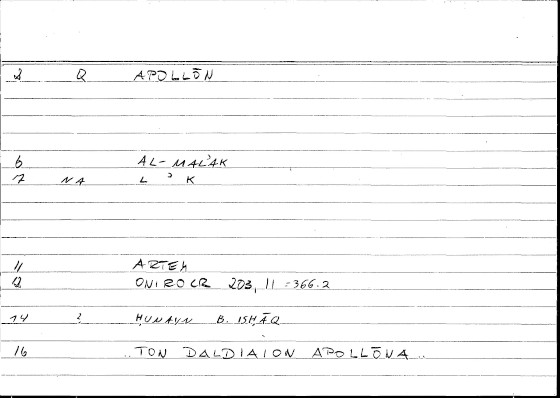 2 Q APOLLŌN
6 AL-MALʾAK
7 NA L ʾ K
11 ARTEM
12 ONIROCR 203, 11 = 366.2
14 2 ḤUNAYN B. ISḤĀQ
16 .. TON DALDIAION APOLLŌNA ..